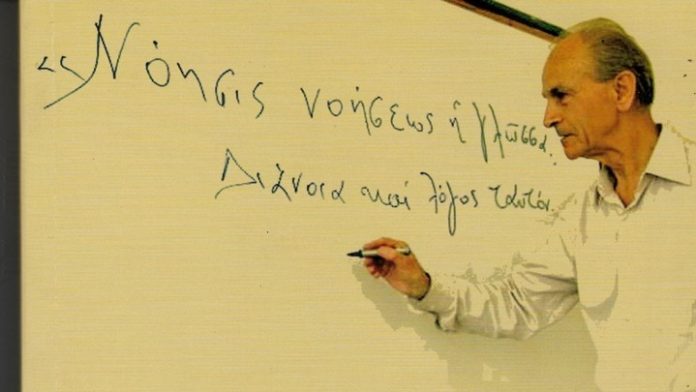 «Νόησις νοήσεως ἡ γλῶσσα.
Διάνοια καί λόγος ταὐτόν.